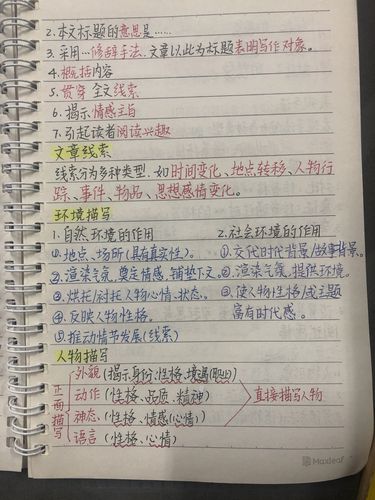 2.本文标题的意思是……
3.采用…修辞手法.文章以此为标题表明写作对象。
4.概括内容
5.贯穿全文线索
6.揭示情感主旨
7.引起读者阅读兴趣
文章线索
线索分为多种类型.如时间变化、地点转移、人物行
踪、事件、物品、思想感情变化。
环境描写
1.自然环境的作用 2.社会环境的作用
①.地点、场所(具有真实性)。 ①.交代时代背景/故事背景。
②.渲染气氛.奠定情感.铺垫下文。 ②.渲染气氛.提供环境。
③.烘托/衬托人物心情.状态。 ③.使人物性格/或主题
④.反映人物性格。 富有时代感。
⑤.推动情节发展(线索)
人物描写
正面描写
外貌(揭示身份.性格.境遇(职业))
动作(性格、品质、精神)
神态(性格、情感(心情))
语言(性格、心情)
直接描写人物
Maxleaf